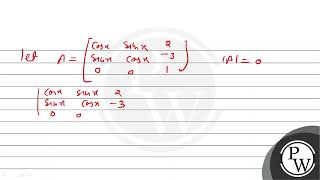 let A = [ cosx sinx 2 |A| = 0
sinx cosx -3
0 0 1 ]
| cosx sinx 2
sinx cosx -3
0 0
PW
PW